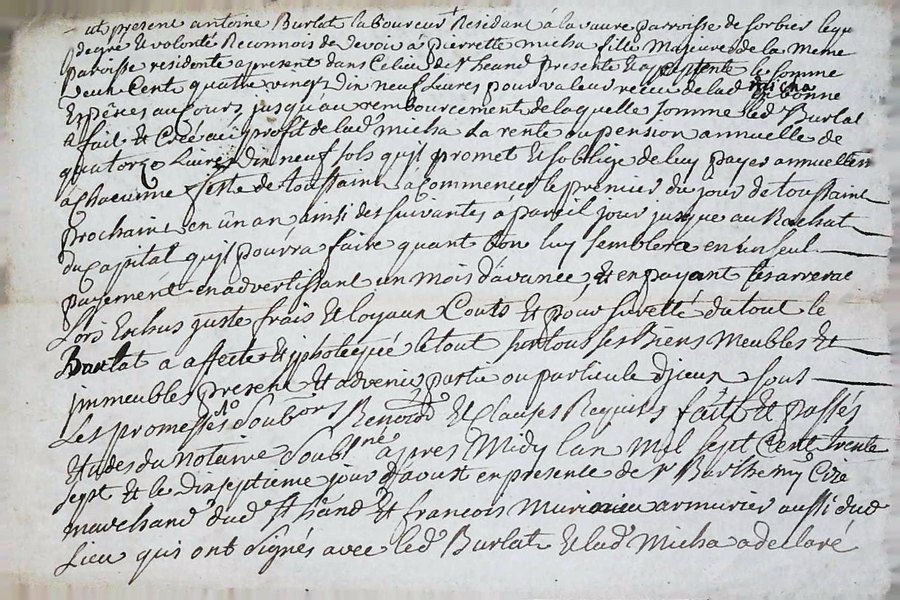 – ut present antoine Burlat laboureur Residant à la vaure parroisse de sorbier lequ
degré et volonté Reconnois de devoir à pierrette micha fille Majeure de la Meme
parroisse residente apresent dans ce lieu de st heand presente et acceptente la somme
deux Cent quatre vingt dix neuf Livres pour valeur receu de lad micha bonne
Espêces au Cours jusqu'au rembourcement de laquelle somme led Burlat
a fait et Créé au profit de lad micha La rente ou pension annuelle de
quatorze Livres dix neuf sols qu'jl promet et s'oblige de luy payer annuellem
a chacunne feste de toussaint à commencer le premier du jour de toussaint
prochaine en un an, ainsi des suivantes à pareil jour jusque au Rachat
du Capital qu'jl pourra faire quant bon luy semblera en un seul
payement en advertissant un mois d'avance, et en payant les arrerai
Lors Echus juste frais et loyaux Couts et pour suretté du tout le
Burlat a affecté et jpothequé le tout sur tous ses Biens Meubles et
jmmeubles present et advenir partie ou particule djceux sous
Les promesses obons Renonons et Clauses Requises fait et passés
Etudes du notaire soubsné apres Midy L'an Mil sept Cent trente
sept et le dix septieme jour d'aoust en presence de sr Barthemy Cize
marchand dud st heand et francois armurier aussi dud
Lieu qui ont signés avec led Burlat et lad Micha a declaré